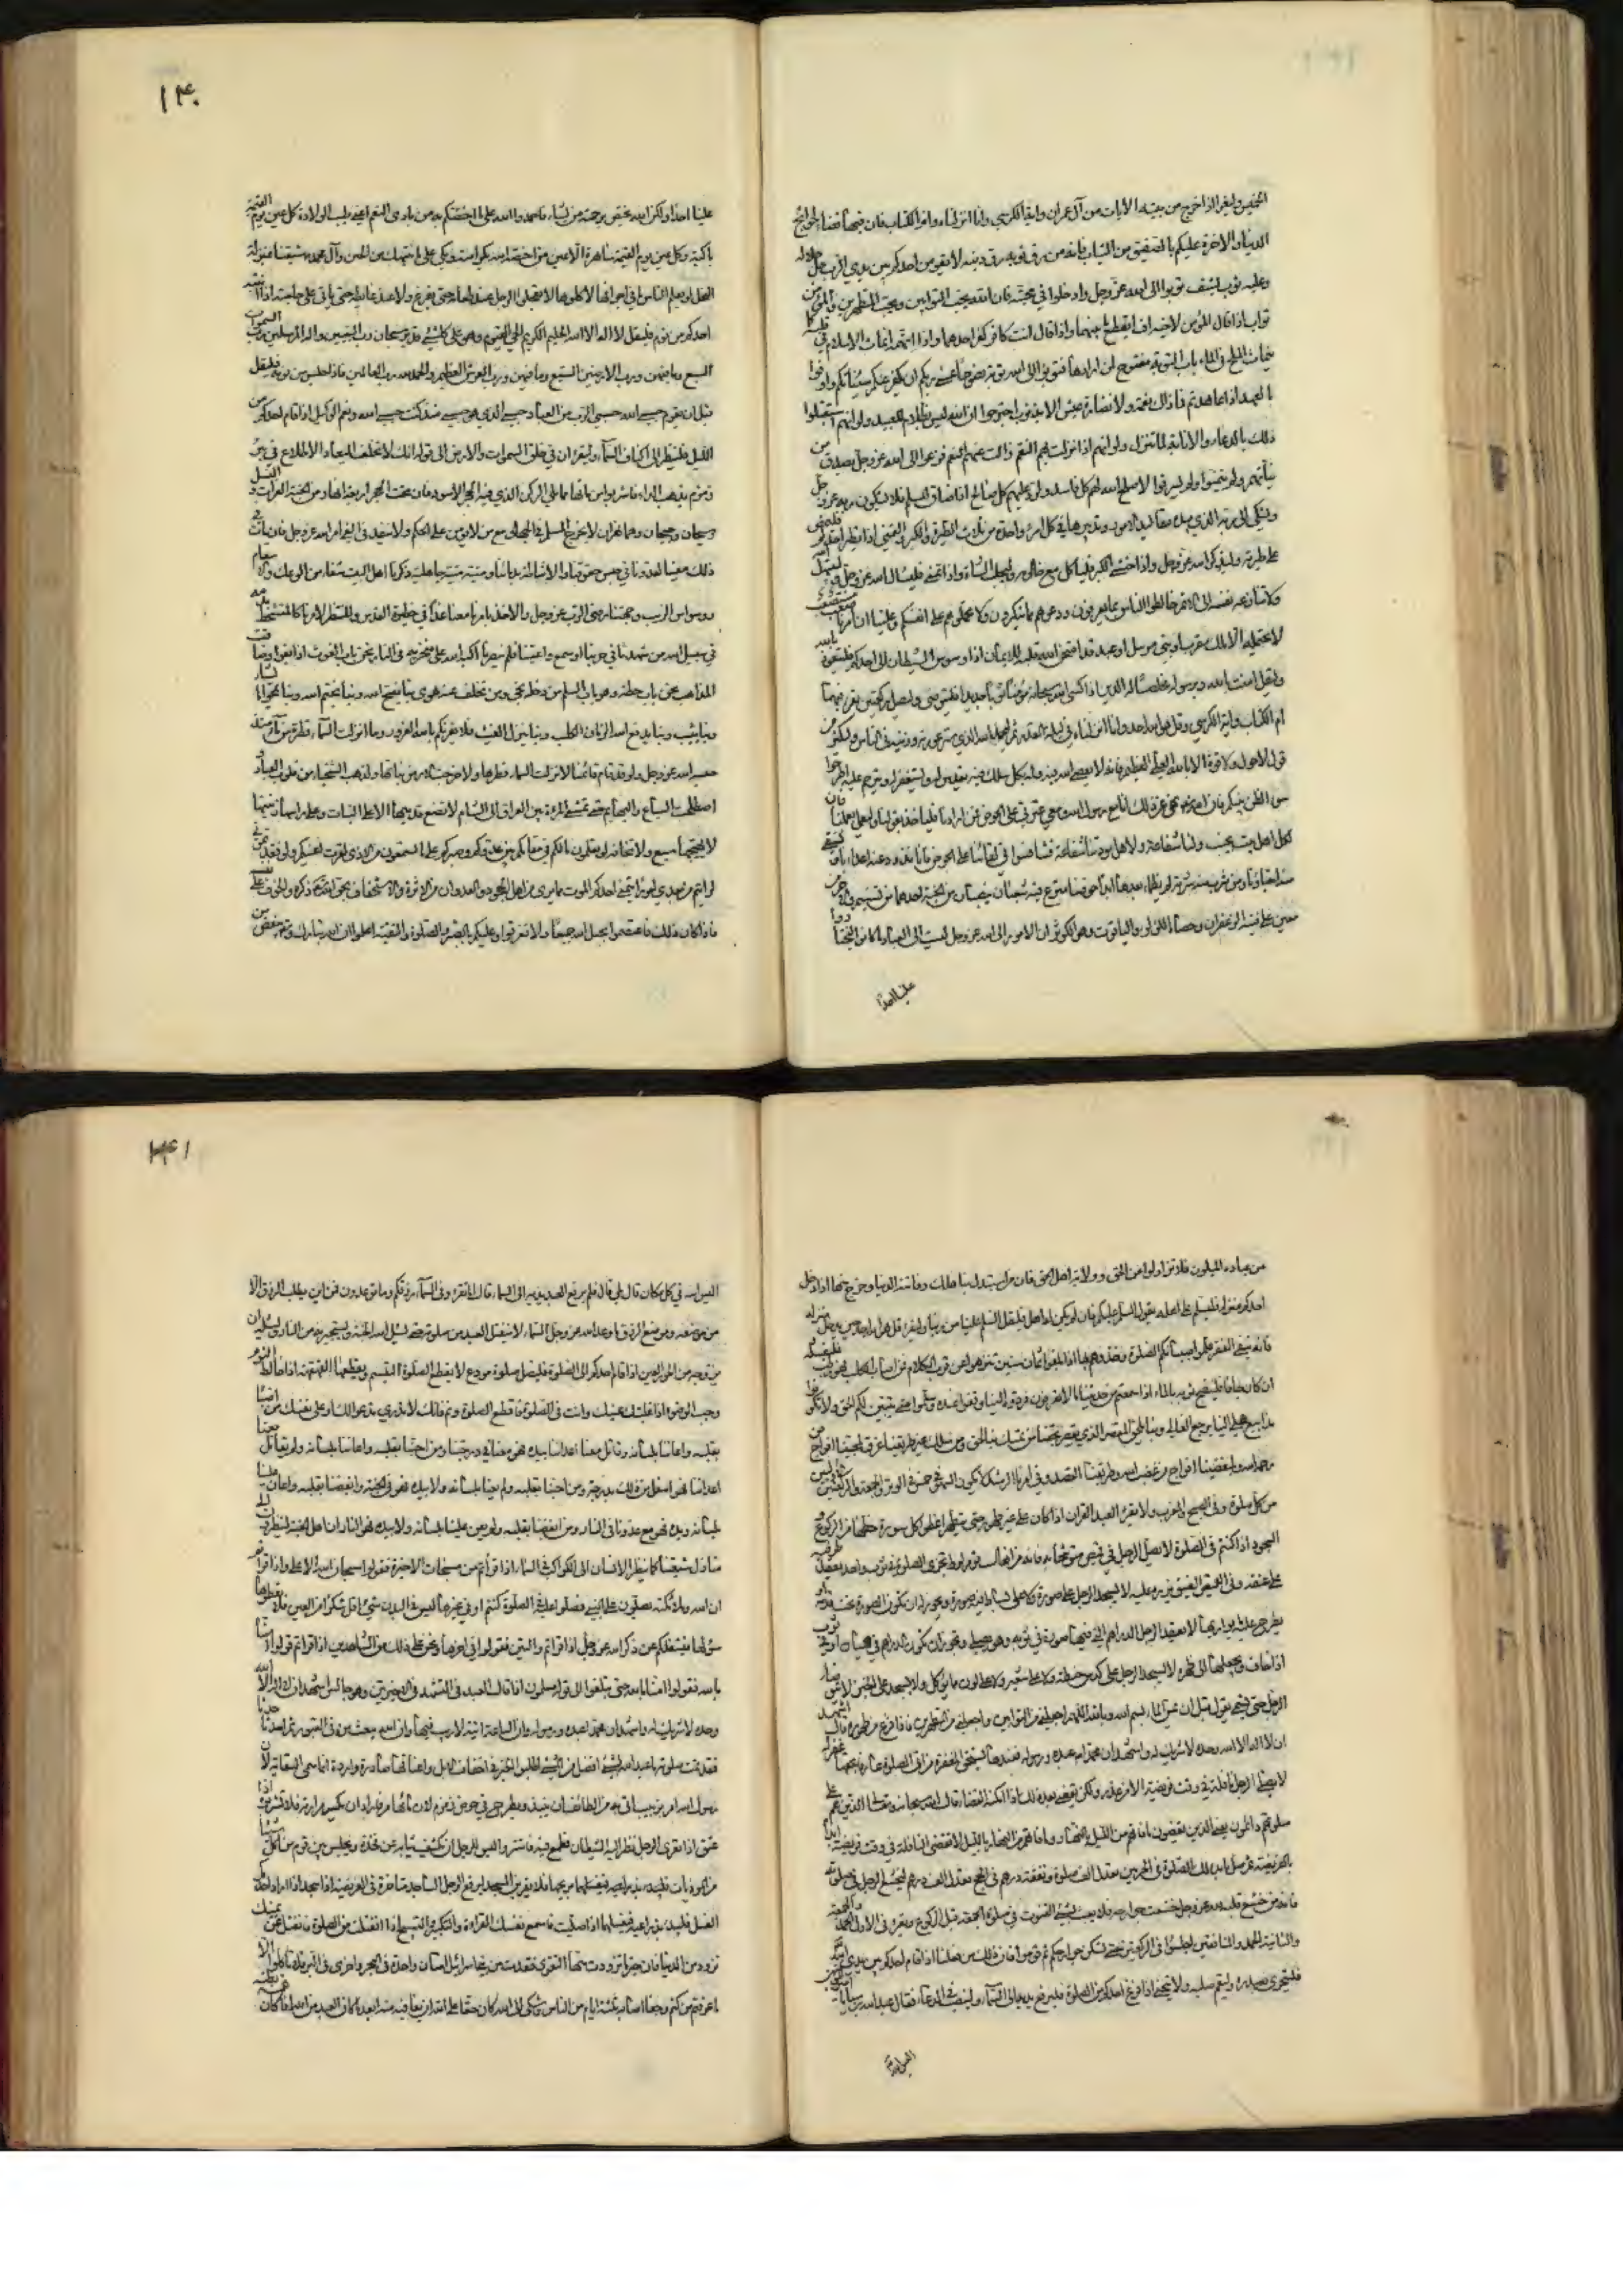 الخميس وليقرأ اذا خرج من بيته الآيات من آل عمران وآية الكرسي وانا انزلناه وام الكتاب فان فيها قضاء لحوائج
الدنيا والاخرة عليكم بالصفيق من الثياب فانه من رق ثوبه رق دينه لا يقومن احدكم بين يدي الرب جل جلاله
وعليه ثوب يشف توبوا الى الله عز وجل وادخلوا في محبته فان الله يحب التوابين ويحب المتطهرين والمؤمن
تواب اذا قال المؤمن لاخيه اف انقطع ما بينهما واذا قال انت كافر كفر احدهما واذا اتهمه انماث الاسلام في قلبه كما
ينماث الملح في الماء باب التوبة مفتوح لمن ارادها فتوبوا الى الله توبة نصوحا عسى ربكم ان يكفر عنكم سيئاتكم واوفوا
بالعهد اذا عاهدتم فما زالت نعمة ولا نضارة عيش الا بذنوب اجترحوا ان الله ليس بظلام للعبيد ولو انهم استقبلوا
ذلك بالدعاء والانابة لما تنزل ولو انهم اذا نزلت بهم النقم وزالت عنهم النعم فزعوا الى الله عز وجل بصدق من
نياتهم ولم يتمنوا ولم يسرفوا لاصلح الله لهم كل فاسد ولرد عليهم كل صالح اذا ضاق المسلم فلا يشكون ربه عز وجل
وليشتكى الى ربه الذي بيده مقاليد الامور وتدبيرها في كل امرء واحدة من ثلاث الطيرة والكبر والتمني اذا تطير احدكم فليمض
على طيرته وليذكر الله عز وجل واذا خشي الكبر فليأكل مع خادمه وليحلب الشاة واذا تمنى فليسأل الله عز وجل
ولا تنازعه نفسه الى الاثم خالطوا الناس بما يعرفون ودعوهم مما ينكرون ولا تحملوهم على انفسكم وعلينا ان امرنا صعب مستصعب
لا يحتمله الا ملك مقرب او نبي مرسل او عبد قد امتحن الله قلبه للايمان اذا وسوس الشيطان الى احدكم فليتعوذ بالله
وليقل امنت بالله وبرسوله مخلصا له الدين اذا كسى الله سبحانه مؤمنا ثوبا جديدا فليتوضى وليصل ركعتين يقرء فيهما
ام الكتاب وآية الكرسي وقل هو الله احد وانا انزلناه في ليلة القدر ثم ليحمد الله الذي ستر عورته وزينه في الناس وليكثر من
قول لا حول ولا قوة الا بالله العلي العظيم فانه لا يعصى الله فيه وله بكل سلك فيه ملك يقدس له ويستغفر له ويترحم عليه اطرحوا
سوء الظن بينكم فان الله نهى عن ذلك انا مع رسول الله ومعي عترتي على الحوض فمن ارادنا فليأخذ بقولنا وليعمل بعملنا فان
لكل اهل بيت نجيب ولنا شفاعة ولاهل مودتنا شفاعة فتنافسوا في لقائنا على الحوض فانا نذود عنه اعداءنا ونسقي
منه احباءنا ومن شرب منه شربة لم يظماء بعدها ابدا حوضنا مترع فيه مثعبان ينصبان من الجنة احدهما من تسنيم والاخر من
معين على حافتيه الزعفران وحصاه اللؤلؤ والياقوت وهو الكوثر ان الامور الى الله عز وجل ليست الى العباد لو كانوا ليختاروا
علينا احدا
١٣٠
علينا احدا ولكن الله يختص برحمته من يشاء فاحمدوا الله على ما اختصكم به من بادي النعم اعني طيب الولادة كل عين يوم القيمة
باكية وكل عين يوم القيمة ساهرة الا عين من اختصه الله بكرامته وبكى على ما ينتهك من الحسين وآل محمد شيعتنا بمنزلة
النحل لو يعلم الناس ما في اجوافها لاكلوها لا تعجلوا الرجل عند طعامه حتى يفرغ ولا عند غائطه حتى يأتي على حاجته اذا انتبه
احدكم من نومه فليقل لا اله الا الله الحليم الكريم الحي القيوم وهو على كل شيء قدير سبحان رب النبيين واله المرسلين رب السموات
السبع وما فيهن ورب الارضين السبع وما فيهن ورب العرش العظيم والحمد لله رب العالمين فاذا جلس من نومه فليقل
قبل ان يقوم حسبي الله حسبي الرب من العباد حسبي الذي هو حسبي منذ كنت حسبي الله ونعم الوكيل اذا قام احدكم من
الليل فلينظر الى اكناف السماء وليقرء ان في خلق السموات والارض الى قوله انك لا تخلف الميعاد الاطلاع في بئر
زمزم يذهب الداء فاشربوا من مائها مما يلي الركن الذي فيه الحجر الاسود فان تحت الحجر اربعة انهار من الجنة الفرات والنيل
وسيحان وجيحان وهما نهران لا يخرج المسلم في الجهاد مع من لا يؤمن على الحكم ولا ينفذ في الفيء امر الله عز وجل فان مات في
ذلك كان معينا لعدونا في حبس حقوقنا والاشاطة بدمائنا وميتته ميتة جاهلية ذكرنا اهل البيت شفاء من الوعك والاسقام
ووسواس الريب وجهتنا رضى الرب عز وجل والاخذ بامرنا معنا غدا في حظيرة القدس والمنتظر لامرنا كالمتشحط بدمه
في سبيل الله من شهدنا في حربنا او سمع واعيتنا فلم ينصرنا اكبه الله على منخريه في النار نحن باب الغوث اذا بغوا وضاقت
المذاهب نحن باب حطة وهو باب السلم من دخله نجى ومن تخلف عنه هوى بنا يفتح الله وبنا يختم الله وبنا يمحو ما يشاء
وبنا يثبت وبنا يدفع الله الزمان الكلب وبنا ينزل الغيث فلا يغرنكم بالله الغرور وما انزلت السماء قطرة من ماء منذ
حبسه الله عز وجل ولو قد قام قائمنا لانزلت السماء قطرها ولاخرجت الارض نباتها ولذهب الشحناء من قلوب العباد
اصطلحت السباع والبهائم حتى تمشي المرءة بين العراق الى الشام لا تضع قدميها الا على النبات وعلى رأسها زينتها
لا يهيجها سبع ولا تخافه لو تعلمون ما لكم في مقامكم بين عدوكم وصبركم على ما تسمعون من الاذى لقرت اعينكم ولو فقدتموني
لرأيتم من بعدي امورا يتمنى احدكم الموت مما يرى من اهل الجحود والعدوان من الاثرة والاستخفاف بحق الله ذكره والخوف على نفسه
فاذا كان ذلك فاعتصموا بحبل الله جميعا ولا تفرقوا وعليكم بالصبر والصلوة والتقية اعلموا ان الله تبارك وتعالى يبغض من
من عباده المتلون فلا تزولوا عن الحق وولاية اهل الحق فان من استبدل بنا هلك وفاتته الدنيا وخرج منها اذا دخل
احدكم منزله فليسلم على اهله يقول السلام عليكم فان لم يكن له اهل فليقل السلام علينا من ربنا وليقرء قل هو الله احد حين يدخل منزله
فانه ينفي الفقر علموا صبيانكم الصلوة وخذوهم بها اذا بلغوا ثمان سنين تنزهوا عن قرب الكلاب فمن اصاب الكلب وهو رطب فليغسله
ان كان جافا فلينضح ثوبه بالماء اذا سمعتم من حديثنا ما لا تعرفون فردوه الينا وقفوا عنده وسلموا حتى يتبين لكم الحق ولا تكونوا
مذاييع عجلى الينا يرجع الغالي وبنا يلحق المقصر الذي يقصر بحقنا من تمسك بنا لحق ومن سلك غير طريقتنا غرق لمحبينا افواج من
رحمة الله ولمبغضينا افواج من غضب الله وطريقنا القصد وفي امرنا الرشد لا يكون السهو في خمس في الوتر والجمعة والركعتين الاوليين
من كل صلوة وفي الصبح والمغرب ولا يقرء العبد القران اذا كان على غير طهور حتى يتطهر اعطوا كل سورة حظها من الركوع و
السجود اذا كنتم في الصلوة لا يصلي الرجل في قميص متوشحا به فانه من افعال قوم لوط تجزي الصلوة في ثوب واحد يعقد طرفيه
على عنقه وفي القميص الضيق يزره عليه لا يسجد الرجل على صورة ولا على بساط فيه صورة ويجوز ان تكون الصورة تحت قدميه او
يطرح عليه ما يواريها لا يعقد الرجل الدراهم التي فيها صورة في ثوبه وهو يصلي ويجوز ان يكون الدراهم في هميان او في ثوب
اذا خاف ويجعلها الى ظهره لا يسجد الرجل على كدس حنطة ولا على شعير ولا على لون مما يؤكل ولا يسجد على الخبز لا يتوضأ
الرجل حتى يسمي يقول قبل ان يمس الماء بسم الله وبالله اللهم اجعلني من التوابين واجعلني من المتطهرين فاذا فرغ من طهوره قال اشهد
ان لا اله الا الله وحده لا شريك له واشهد ان محمدا عبده ورسوله فعندها يستحق المغفرة من اتى الصلوة عارفا بحقها غفر له
لا يصلي الرجل نافلة في وقت فريضة الا من عذر ولكن يقضي بعد ذلك اذا امكنه القضاء قال الله سبحانه وتعالى الذين هم على
صلوتهم دائمون يعني الذين يقضون ما فاتهم من الليل بالنهار وما فاتهم من النهار بالليل لا تقضى النافلة في وقت فريضة ابدأ
بالفريضة ثم صل ما بدا لك الصلوة في الحرمين تعدل الف صلوة ونفقة درهم في الحج تعدل الف درهم ليخشع الرجل في صلوته
فانه من خشع قلبه لله عز وجل خشعت جوارحه فلا يعبث بشيء القنوت في صلوة الجمعة قبل الركوع ويقرء في الاولى الحمد والجمعة
والثانية الحمد والمنافقين اجلسوا في الركعتين حتى تسكن جوارحكم ثم قوموا فان ذلك من فعلنا اذا قام احدكم بين يدي الله
فليتحرى بصدره وليقم صلبه ولا ينحني اذا فرغ احدكم من الصلوة فليرفع يديه الى السماء ولينصب في الدعاء فقال عبد الله بن سبا يا امير المؤمنين
اليس الله
١٣١
اليس الله في كل مكان قال بلى قال فلم يرفع العبد يديه الى السماء قال اما تقرء وفي السماء رزقكم وما توعدون فمن اين يطلب الرزق الا
من موضعه وموضع الرزق وما وعد الله عز وجل السماء لا ينفتل العبد من صلوته حتى يسئل الله الجنة ويستجير به من النار ويسئله ان
يزوجه من الحور العين اذا قام احدكم الى الصلوة فليصل صلوة مودع لا يقطع الصلوة التبسم ويقطعها القهقهة اذا خالط النوم
وجب الوضوء اذا غلبتك عينك وانت في الصلوة فاقطع الصلوة ونم فانك لا تدري تدعو لك او على نفسك من احبنا
بقلبه واعاننا بلسانه وقاتل معنا اعدائنا بيده فهو معنا في درجتنا ومن احبنا بقلبه واعاننا بلسانه ولم يقاتل معنا
اعدائنا فهو اسفل من ذلك بدرجة ومن احبنا بقلبه ولم يعنا بلسانه ولا بيده فهو في الجنة ومن ابغضنا بقلبه واعان علينا
بلسانه ويده فهو مع عدونا في النار ومن ابغضنا بقلبه ولم يعن علينا بلسانه ولا بيده فهو في النار ان اهل الجنة لينظرون الى
منازل شيعتنا كما ينظر الانسان الى الكواكب في السماء اذا قرأتم من مسبحات الاخيرة فقولوا سبحان الله الاعلى واذا قرأتم
ان الله وملائكته يصلون على النبي فصلوا عليه في الصلوة كنتم او في غيرها ليس في البدن شيء اقل شكرا من العين فلا تعطوها
سؤلها فيشغلكم عن ذكر الله عز وجل اذا قرأتم والتين فقولوا في اخرها ونحن على ذلك من الشاهدين اذا قرأتم قولوا امنا
بالله فقولوا امنا بالله حتى تبلغوا الى قوله مسلمون اذا قال العبد في التشهد في الاخيرتين وهو جالس اشهد ان لا اله الا الله
وحده لا شريك له واشهد ان محمدا عبده ورسوله وان الساعة اتية لا ريب فيها وان الله يبعث من في القبور ثم احدث حدثا
فقد تمت صلوته ما عبد الله بشيء افضل من المشي الى بيته اطلبوا الخير في اخفاف الابل واعناقها صادرة وواردة انما سمي السقاية لان
رسول الله امر بزبيب اتي به من الطائف ان ينبذ ويطرح في حوض زمزم لان مائها مر فاراد ان يكسر مرارته فلا تشربوه اذا
عتق اذا تعرى الرجل نظر اليه الشيطان فطمع فيه فاستتروا ليس للرجل ان يكشف ثيابه عن فخذه ويجلس بين قوم من اكل شيئا
من المؤذيات فليرفع الرجل الساجد مؤخره في الفريضة اذا سجد اذا اراد احدكم
الغسل فليبدأ بذراعيه فيغسلهما اذا صليت فاسمع نفسك القراءة والتكبير والتسبيح اذا انفتلت من الصلوة فانفتل عن يمينك
تزود من الدنيا فان خير ما تزودت منها التقوى فقدت من بني اسرائيل امتان واحدة في البحر واخرى في البر فلا تأكلوا الا
ما عرفتم من كتم وجعا اصابه ثلثة ايام من الناس وشكى الى الله كان حقا على الله ان يعافيه منه ابعد ما كان العبد من الله اذا كان